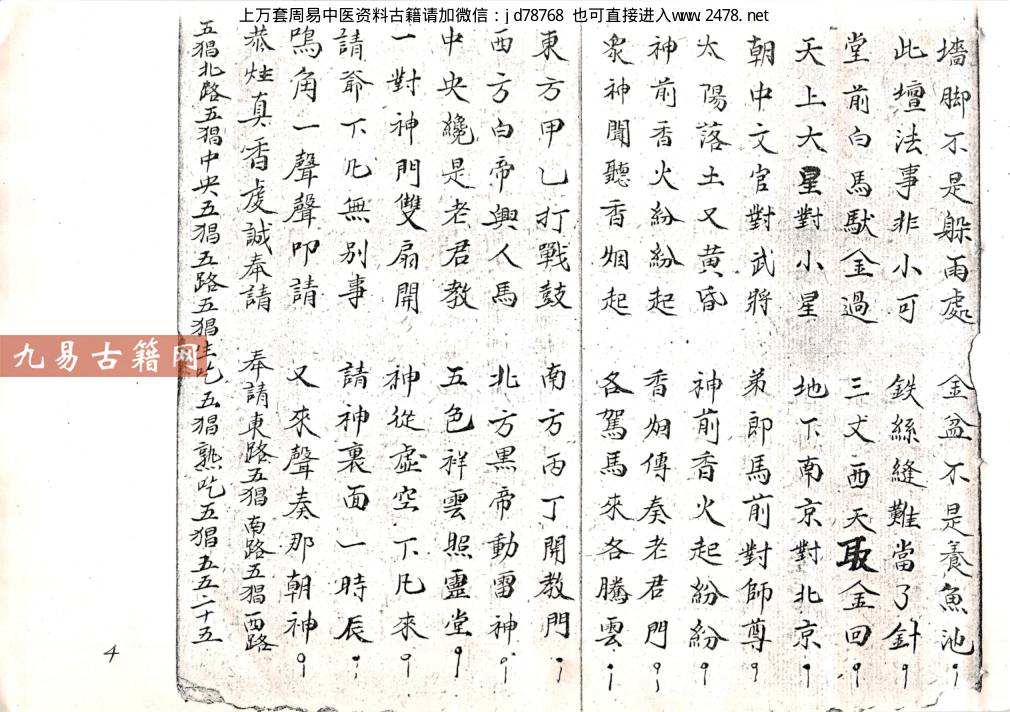 上万套周易中医资料古籍请加微信：jd78768 也可直接进入www.2478.net
墻脚不是躲雨處 金盆不是養魚池
此壇法事非小可 鉄絲縫難當了針
堂前白馬馱金過 三丈西天取金回
天上大星對小星 地下南京對北京
朝中文官對武將 弟郎馬前對師尊
太陽落土又黄昏 神前香火起紛紛
神前香火紛紛起 香烟傳奏老君門
衆神聞聽香烟起 各駕馬來各騰雲
東方甲乙打戰鼓 南方丙丁開教門
西方白帝興人馬 北方黑帝動雷神
中央纔是老君教 五色祥雲照靈堂
一對神門雙扇開 神從虚空下凡來
請爺下凡無別事 請神裏面一時辰
鳴角一聲聲叩請 又來聲奏那朝神
恭炷真香虔誠奉請 奉請東路五猖南路五猖西路
五猖北路五猖中央五猖五路五猖生吃五猖熟吃五猖五五二十五
九易古籍网
4